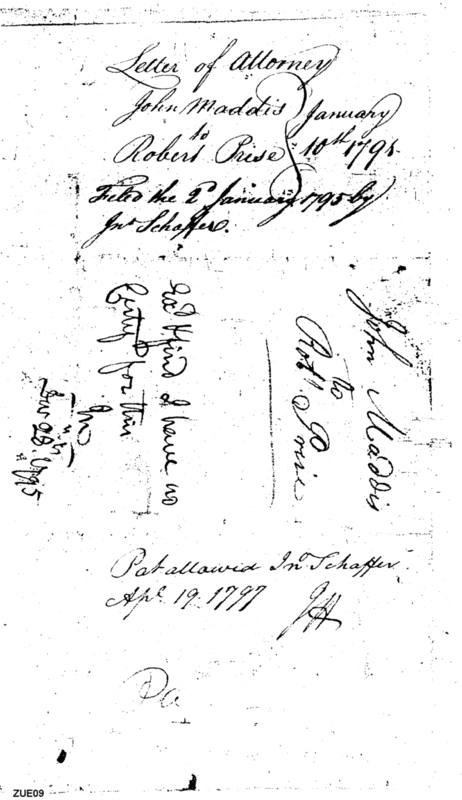 Letter of Attorney
John Maddis
to
Robert Prise
January
10th 1795.
Filed the 2d January 1795 by
Jno Schaffer.
John Maddis
to
Robt Prise
I have no
for this
Pat allowed Jno Schaffer
Apl 19. 1797
JH
Pa
ZUE09